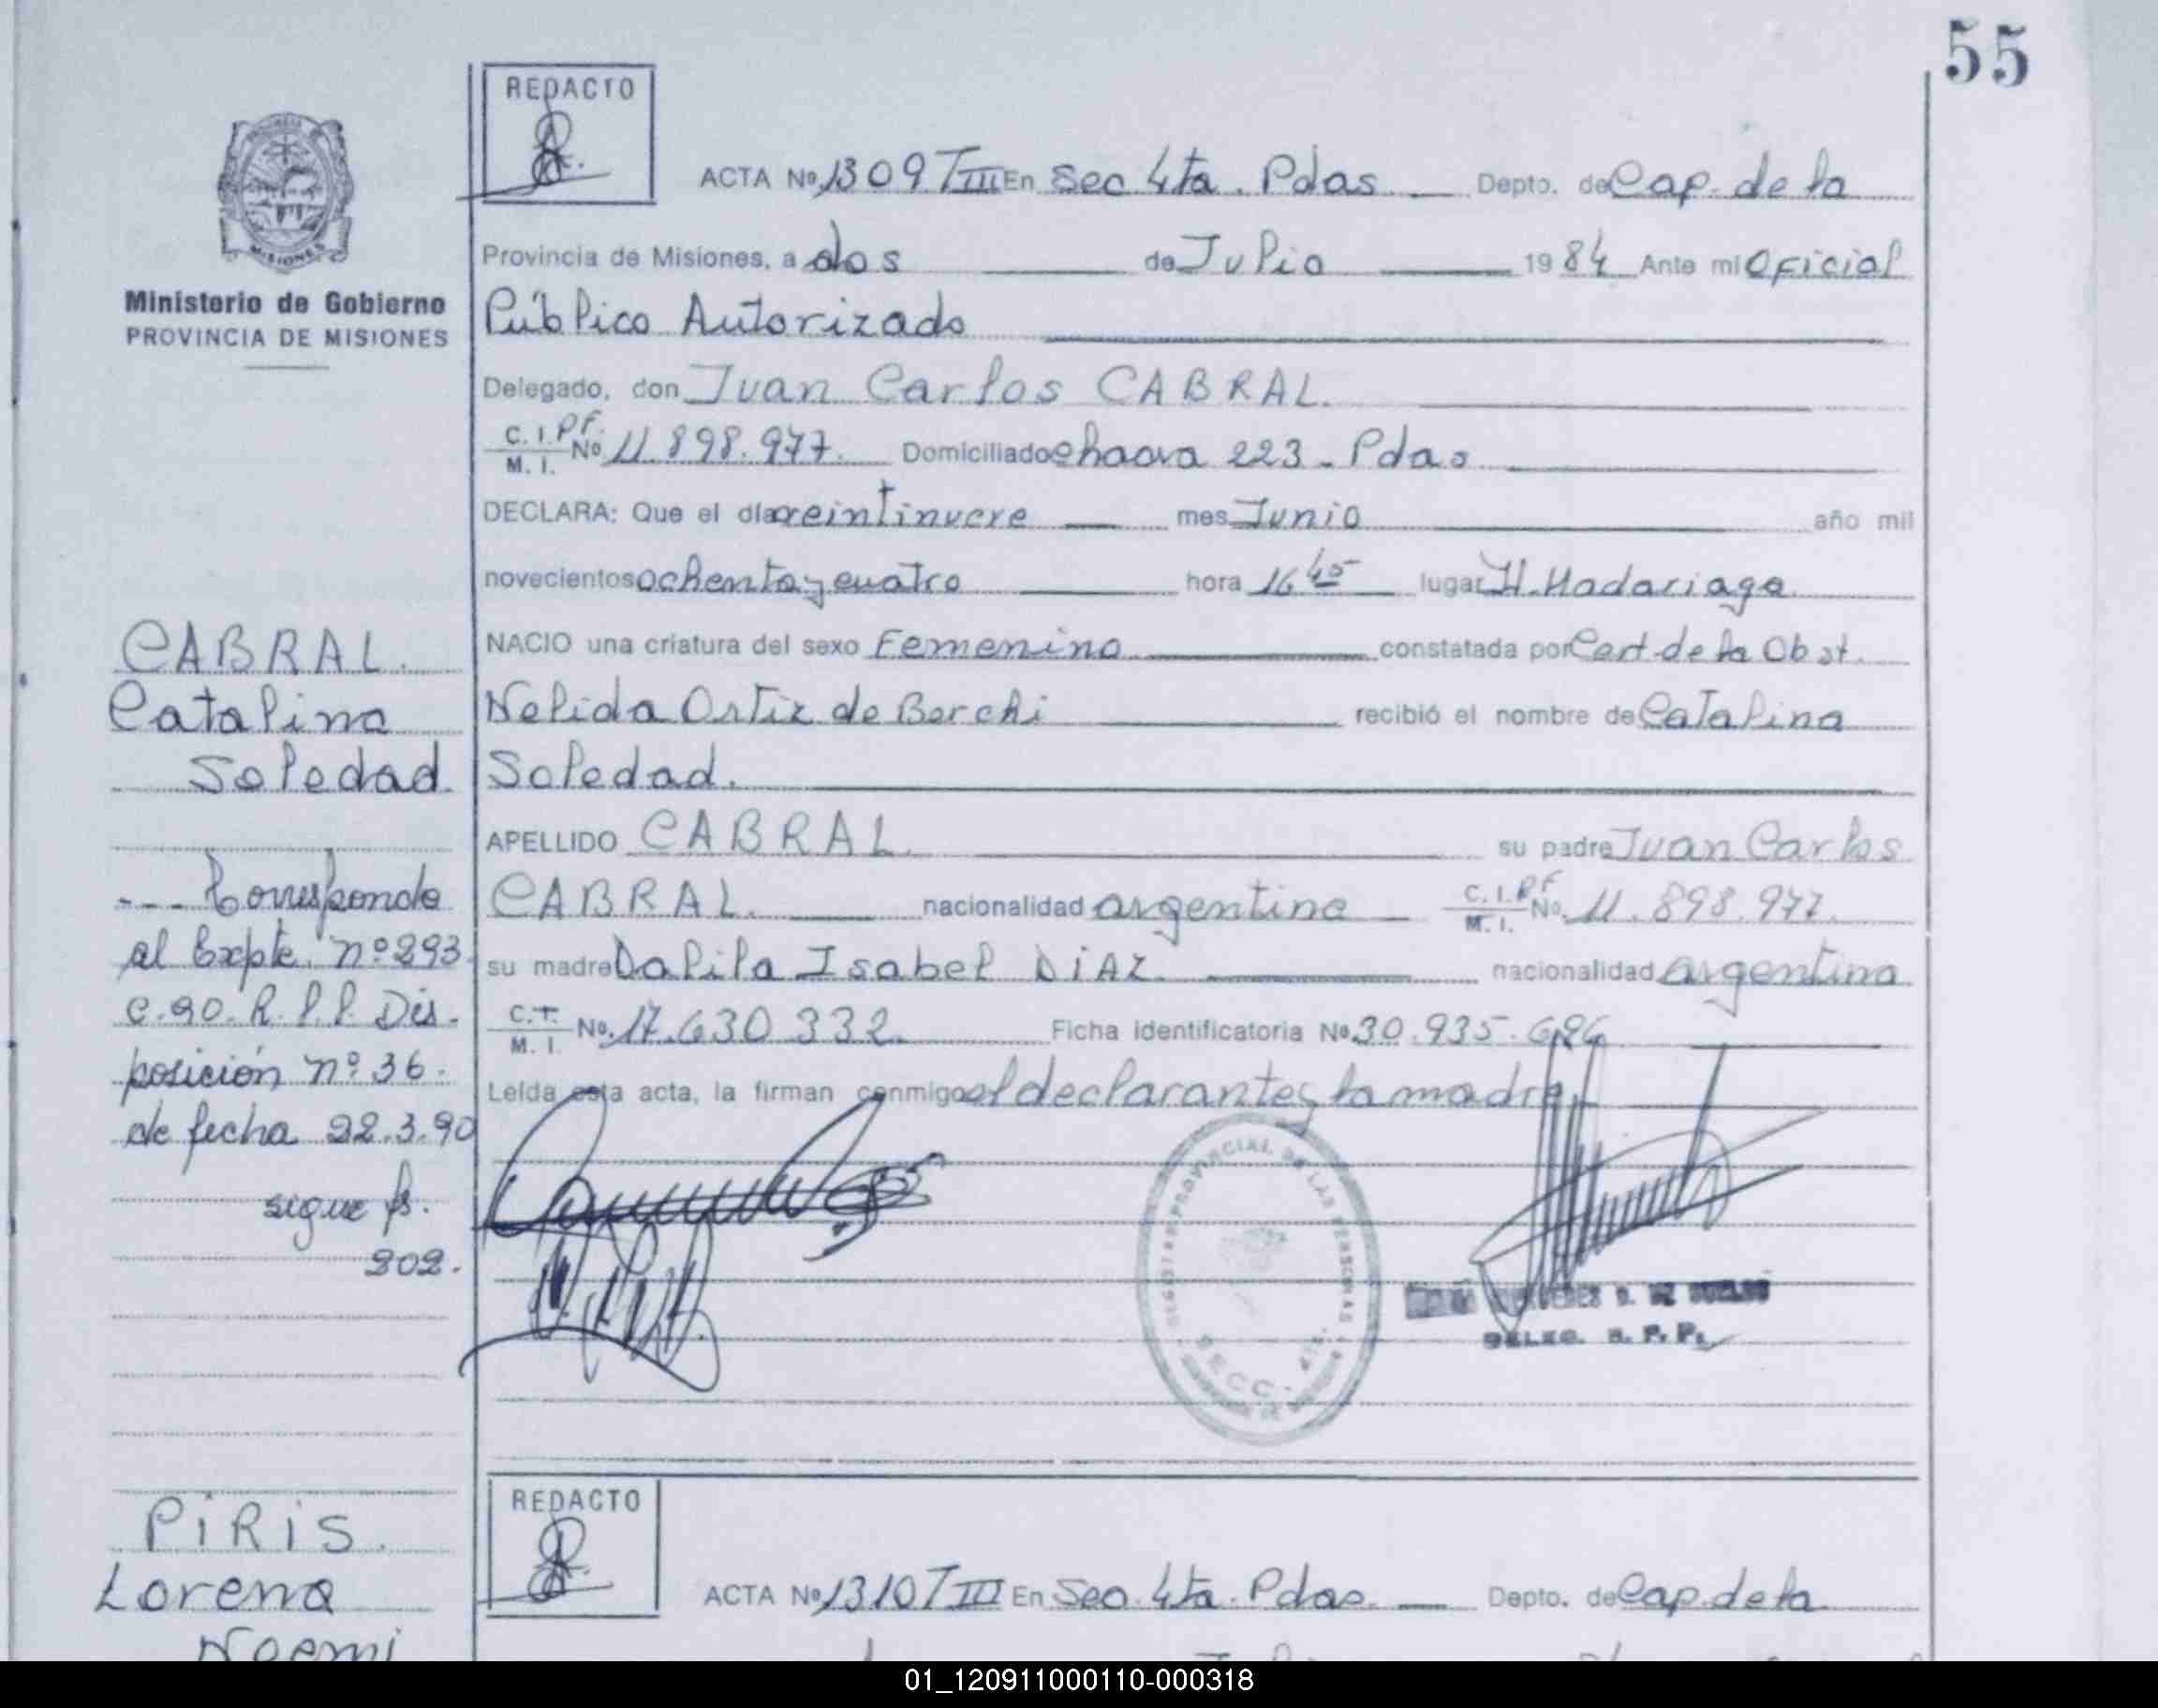 55
REDACTO
ACTA Nº 1309 TIII En Sec 4ta. Pdas Depto. de Cap. de la
Provincia de Misiones, a dos de Julio 1984 Ante mi Oficial
Ministerio de Gobierno
PROVINCIA DE MISIONES
Público Autorizado
Delegado, don Juan Carlos CABRAL.
C. I. P.F. M. I. Nº 11.898.977. Domiciliado chacra 223 - Pdas
DECLARA: Que el día veintinueve mes Junio año mil
novecientos ochenta y cuatro hora 16 45 lugar H. Madariaga
NACIO una criatura del sexo Femenino constatada por Cert. de la Obst.
Nelida Ortiz de Berchi recibió el nombre de Catalina
Soledad.
APELLIDO CABRAL su padre Juan Carlos
CABRAL nacionalidad argentina C. I. P.F. M. I. No. 11.898.977.
su madre Dalila Isabel DIAZ nacionalidad argentina
C. I. M. I. No. 17.630.332. Ficha identificatoria Nº 30.935.686
Leída esta acta, la firman conmigo el declarante y la madre
CABRAL.
Catalina
Soledad.
--- Corresponde
al Expte. nº 293.
C. 90. R. P. P. Dis-
posición nº 36.
de fecha 22.3.90
sigue fs.
202.
REGISTRO PROVINCIAL DE LAS PERSONAS
SECC. 4ta.
DELEG. R. P. P.
PIRIS.
Lorena
Noemi
REDACTO
ACTA Nº 1310 TIII En Sec. 4ta. Pdas. Depto. de Cap. de la
01_120911000110-000318